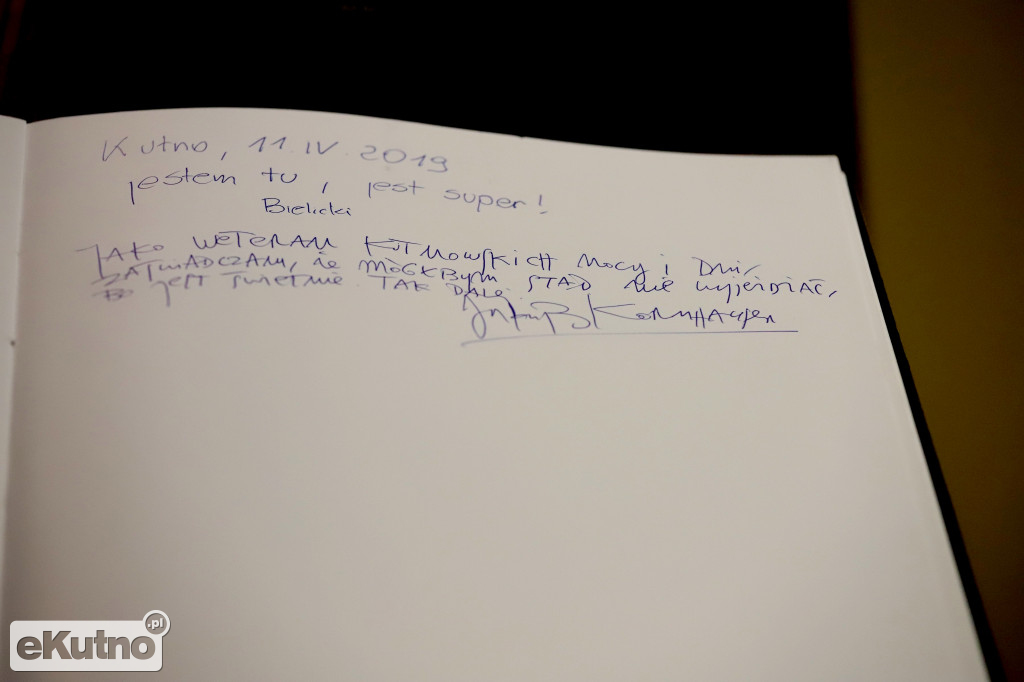 Kutno, 11 IV 2019
jestem tu, jest super!
Bielicki
JAKO WETERAN KUTNOWSKICH NOCY i DNI,
ZAŚWIADCZAM, że MÓGŁBYM STĄD NIE wyjeżdżać,
BO JEST ŚWIETNIE. TAK DALEJ.
KORNHAUSER
eKutno.pl